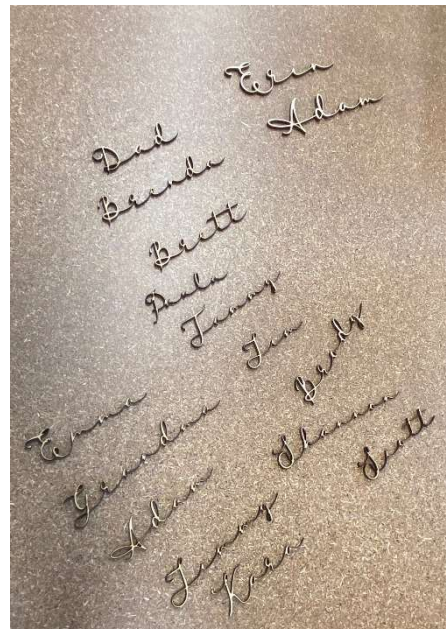 Erin
Adam
Dad
Brenda
Brett
Paula
Tammy
Brody
Emma
Grandma
Shannon
Scott
Adam
Kara